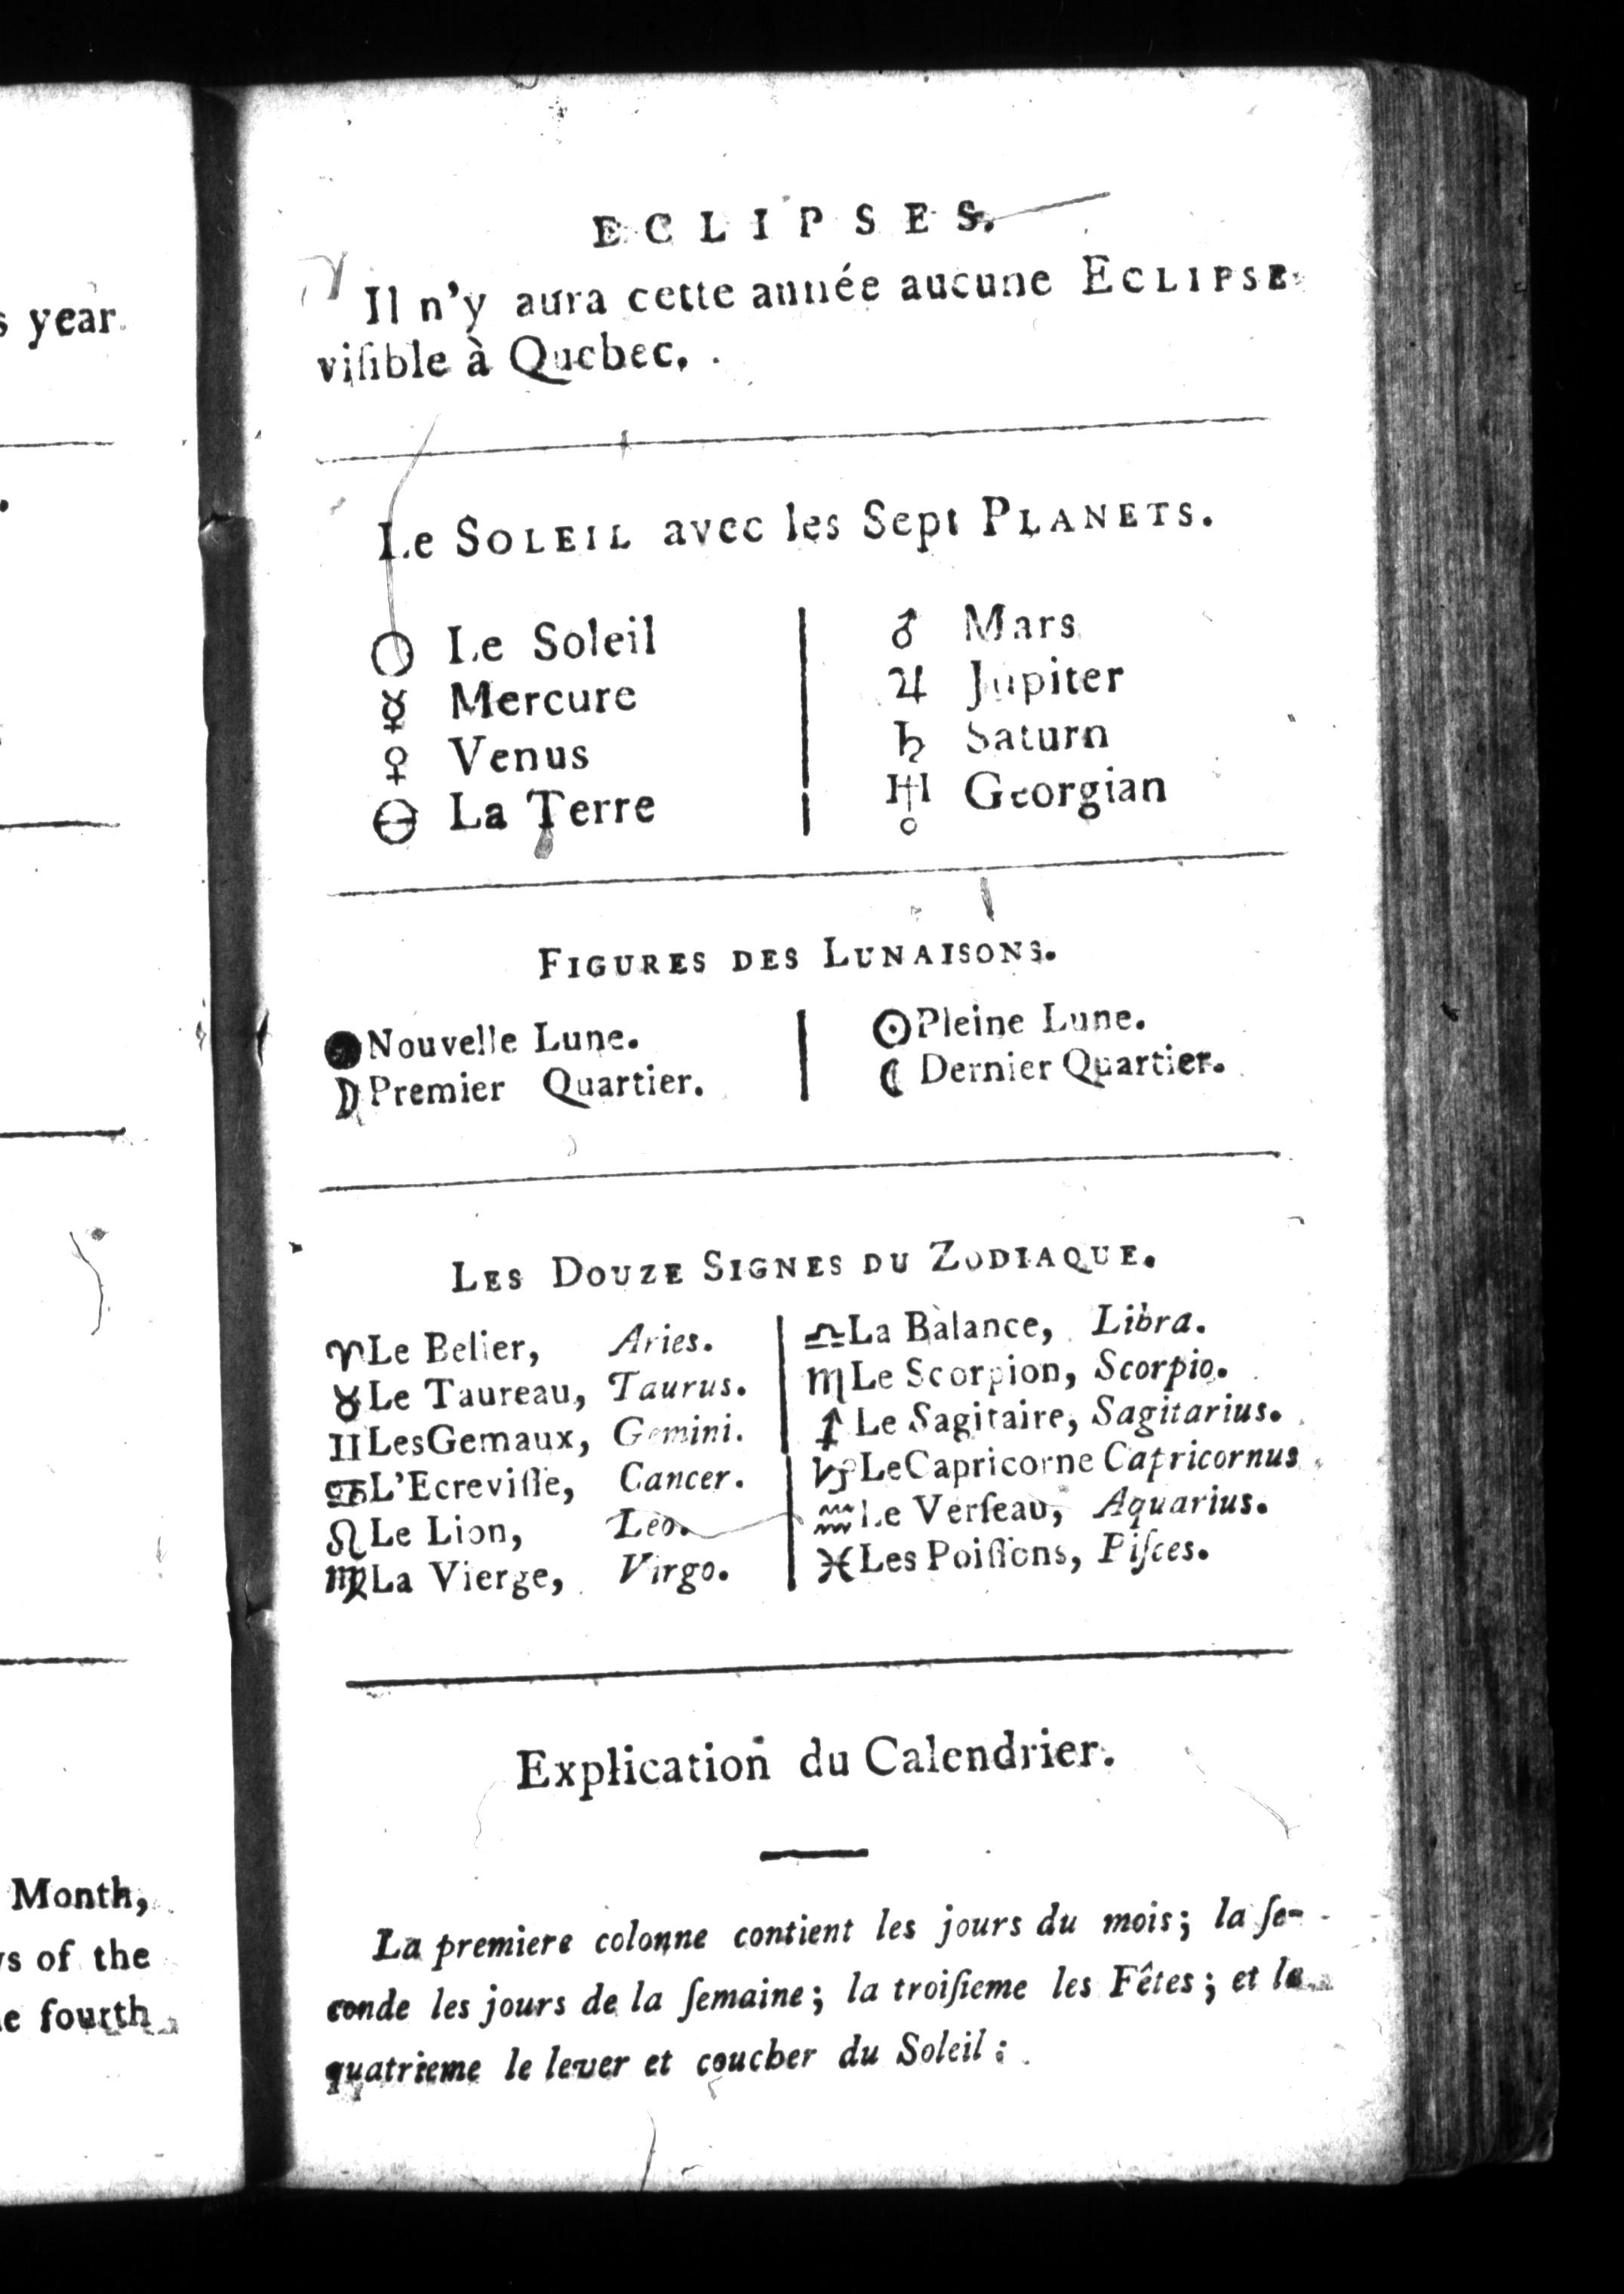 s year
Month,
of the
fourth
ECLIPSES.
Il n'y aura cette année aucune ECLIPSE
viſible à Quebec.
Le SOLEIL avec les Sept PLANETS.
○ Le Soleil
☿ Mercure
♀ Venus
⊖ La Terre
♂ Mars
♃ Jupiter
♄ Saturn
♅ Georgian
FIGURES DES LUNAISONS.
● Nouvelle Lune.
☽ Premier Quartier.
☉ Pleine Lune.
☾ Dernier Quartier.
LES DOUZE SIGNES DU ZODIAQUE.
♈ Le Belier, Aries.
♉ Le Taureau, Taurus.
♊ LesGemaux, Gemini.
♋ L'Ecreviſſe, Cancer.
♌ Le Lion, Leo.
♍ La Vierge, Virgo.
♎ La Balance, Libra.
♏ Le Scorpion, Scorpio.
♐ Le Sagitaire, Sagitarius.
♑ LeCapricorne Capricornus
♒ Le Verſeau, Aquarius.
♓ Les Poiſſons, Piſces.
Explication du Calendrier.
La premiere colonne contient les jours du mois; la ſe-
conde les jours de la ſemaine; la troiſieme les Fêtes; et la
quatrieme le lever et coucher du Soleil: